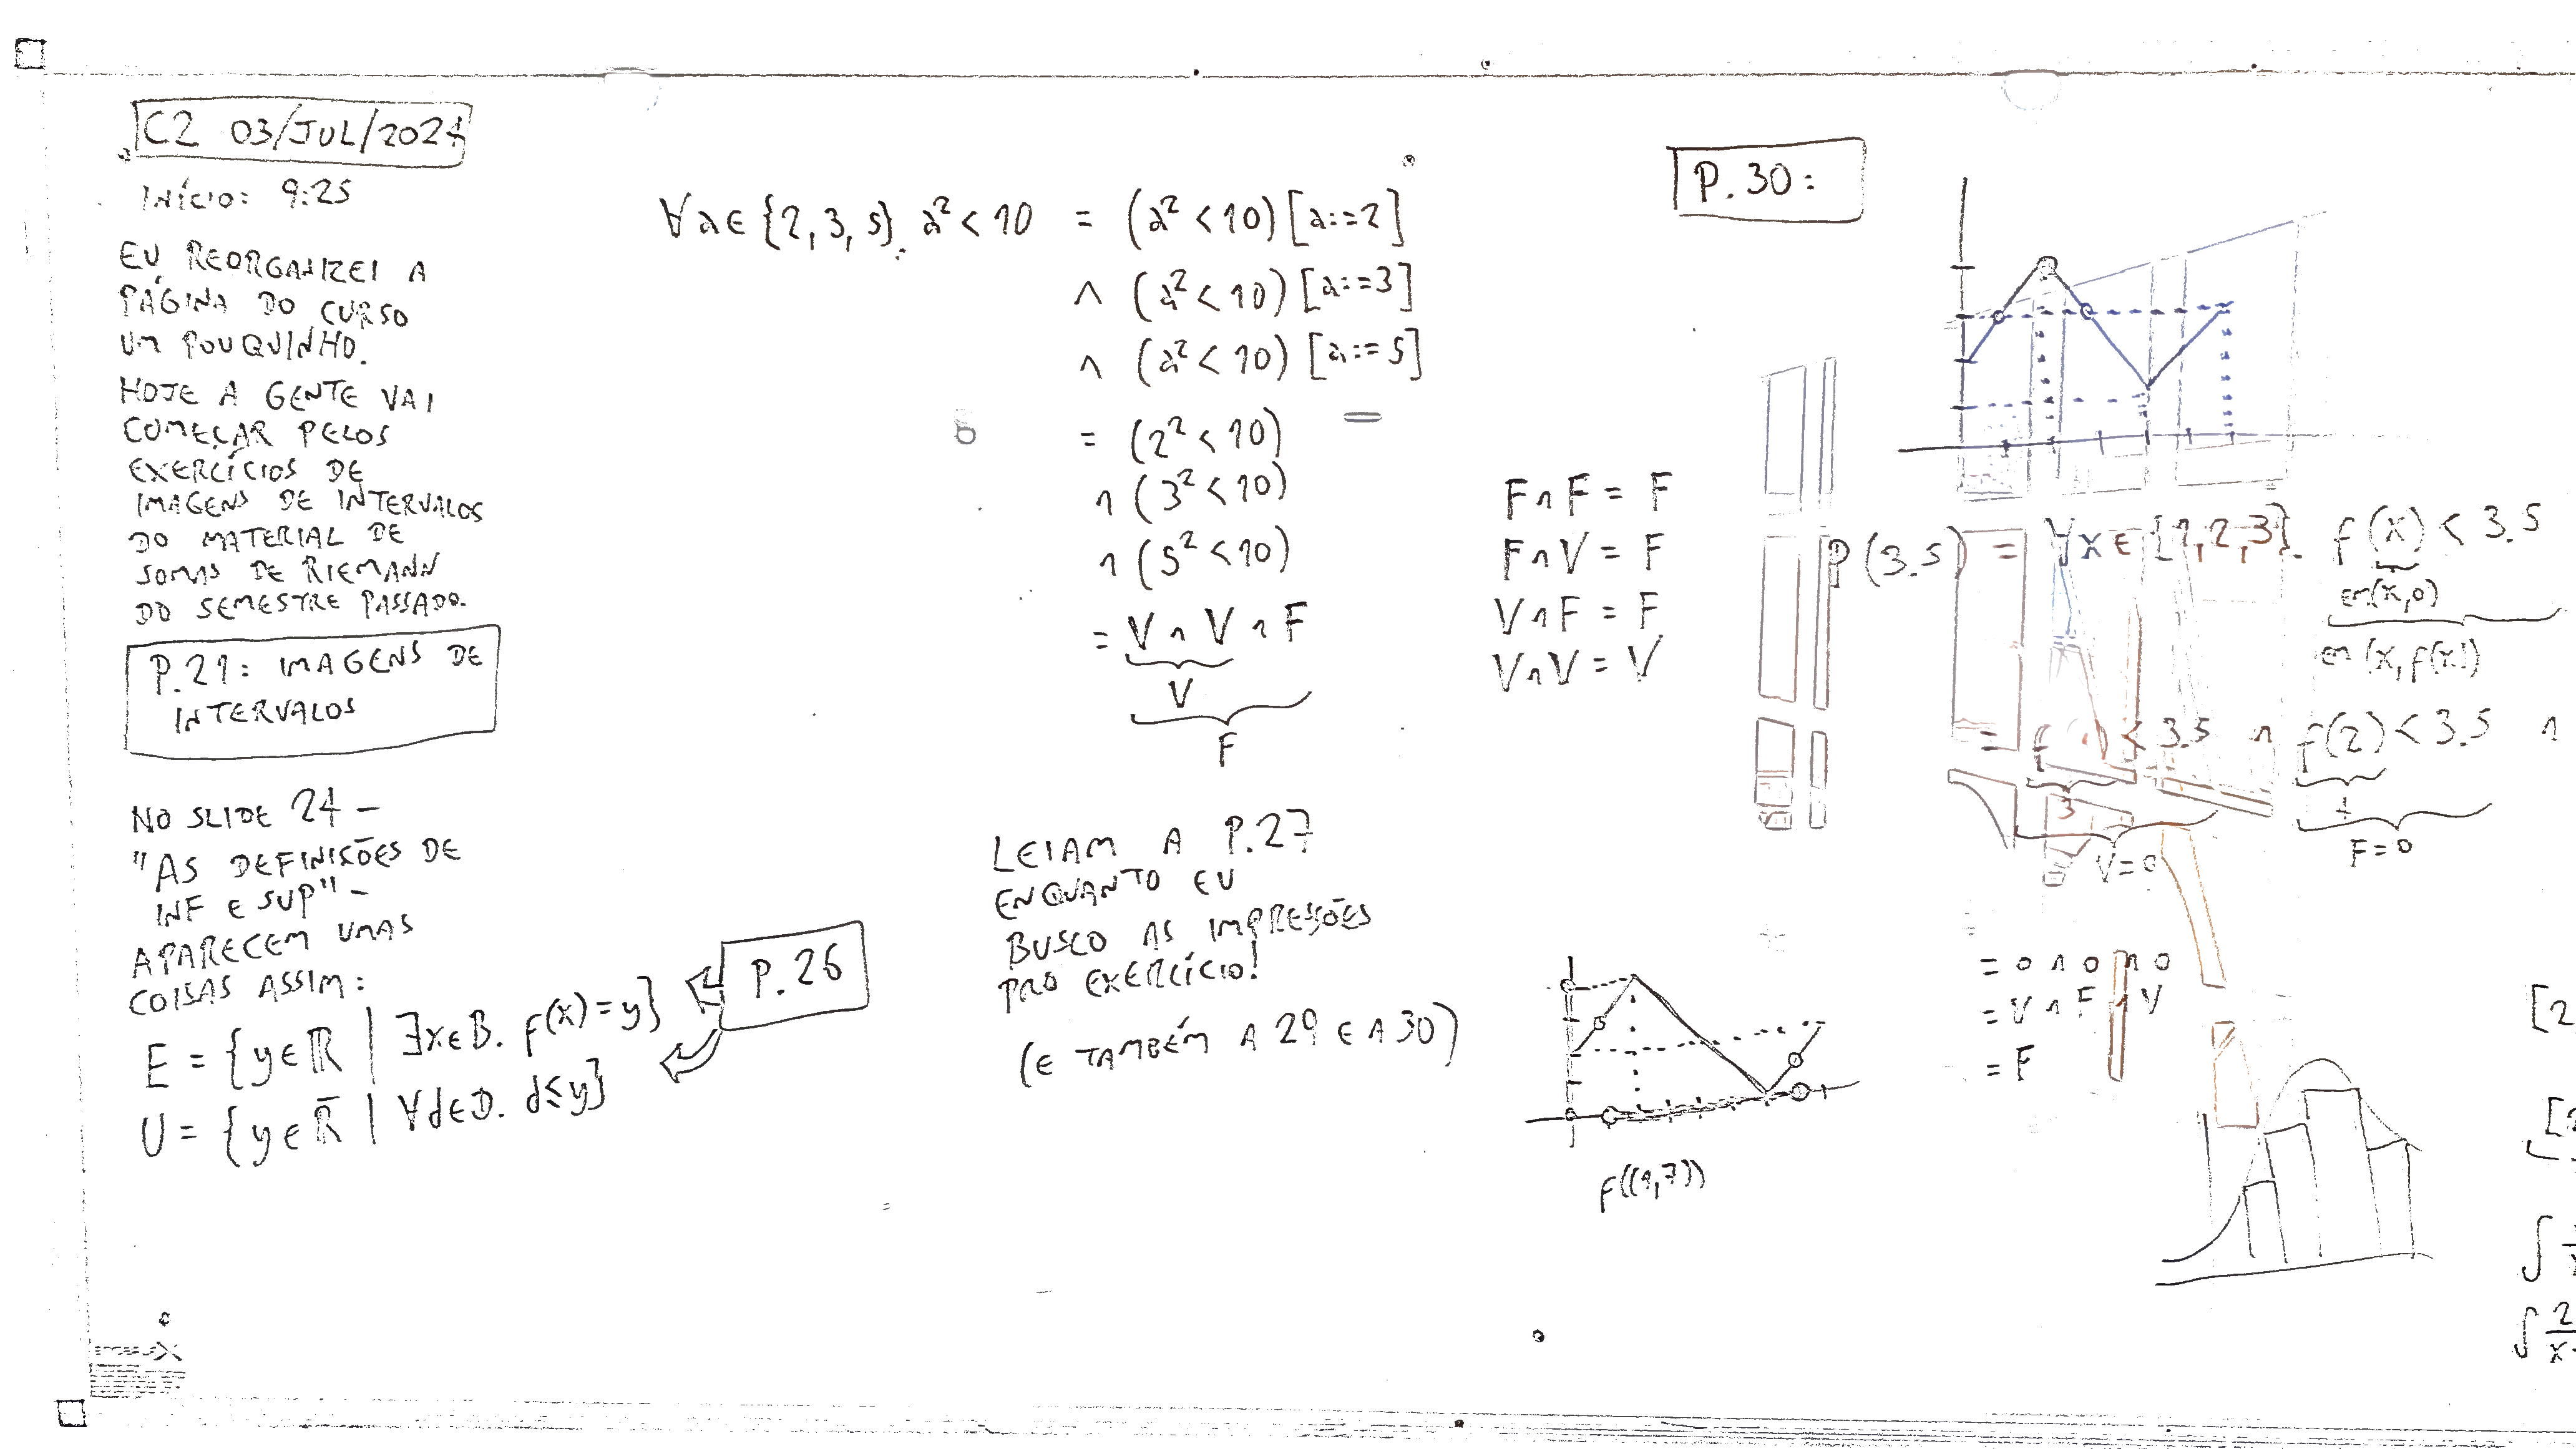 C2 03/JUL/2024
INÍCIO: 9:25
EU REORGANIZEI A
PÁGINA DO CURSO
UM POUQUINHO.
HOJE A GENTE VAI
COMEÇAR PELOS
EXERCÍCIOS DE
IMAGENS DE INTERVALOS
DO MATERIAL DE
SOMAS DE RIEMANN
DO SEMESTRE PASSADO.
P.21: IMAGENS DE
INTERVALOS
NO SLIDE 24 –
"AS DEFINIÇÕES DE
INF E SUP" –
APARECEM UMAS
COISAS ASSIM:
E = {y∈ℝ | ∃x∈B. f(x)=y}
U = {y∈ℝ̄ | ∀d∈D. d≤y}
P.26
∀a∈{2,3,5}. a²<10 = (a²<10)[a:=2]
∧ (a²<10)[a:=3]
∧ (a²<10)[a:=5]
= (2²<10)
∧ (3²<10)
∧ (5²<10)
= V ∧ V ∧ F
V
F
LEIAM A P.27
ENQUANTO EU
BUSCO AS IMPRESSÕES
PRO EXERCÍCIO!
(E TAMBÉM A 29 E A 30)
F∧F = F
F∧V = F
V∧F = F
V∧V = V
f((1,7))
P.30:
P(3.5) = ∀x∈{1,2,3}. f(x) < 3.5
em (x,0)
em (x,f(x))
< 3.5 ∧ f(2) < 3.5 ∧
3 4
V=0 F=0
= 0 ∧ 0 ∧ 0
= V ∧ F ∧ V
= F
[2
∫
∫ 2
x